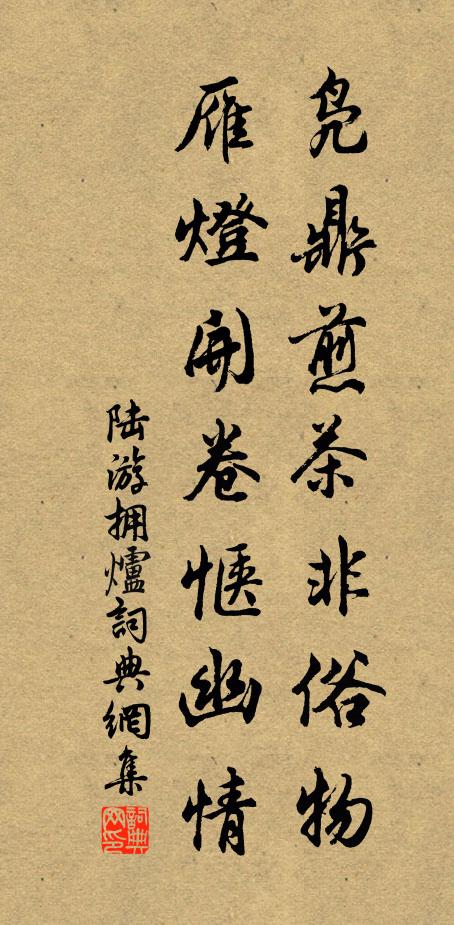 凫鼎煎茶非俗物
雁燈開卷愜幽情
陆游拥爐詞典網集
詞典網印